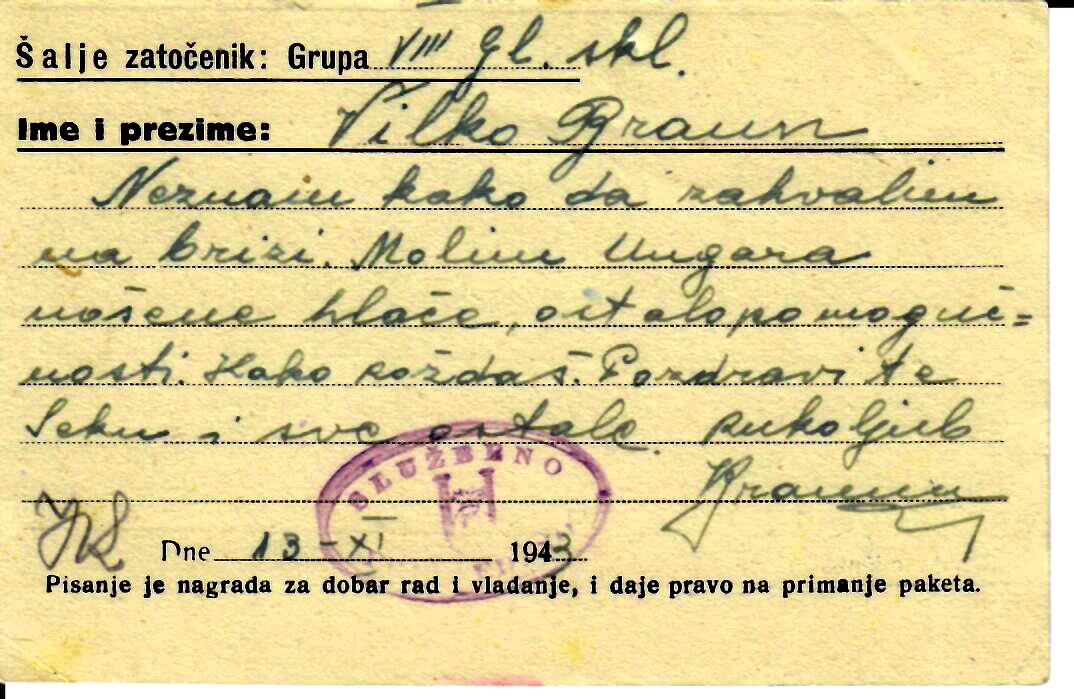 Šalje zatočenik: Grupa VIII gl. skl.
Ime i prezime: Vilko Braun
Neznam kako da zahvalim
na brizi. Molim Ungara
nošene hlače, ostalo po moguć=
nosti. Kako
Pozdravite
Seku i sve ostale. rukoljub
Braun
SLUŽBENO
Dne 13-XI 1943
Pisanje je nagrada za dobar rad i vladanje, i daje pravo na primanje paketa.